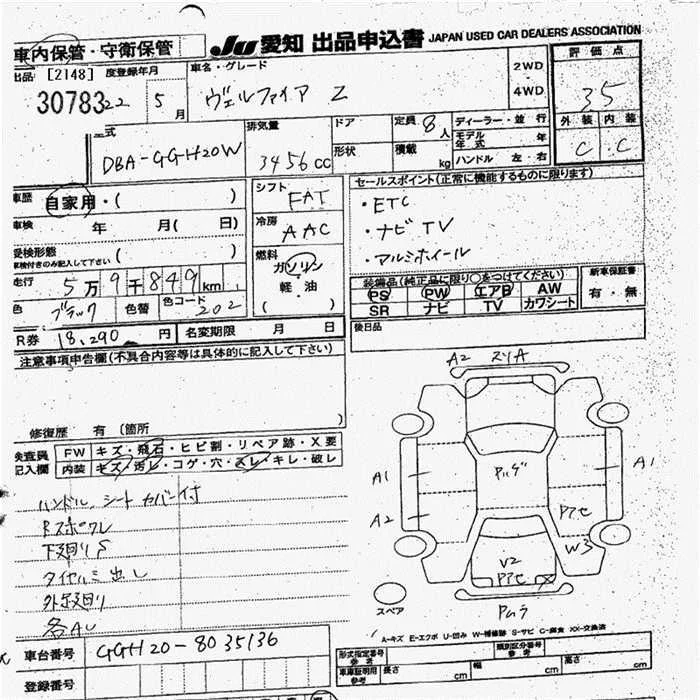 車内保管・守衛保管 JU 愛知 出品申込書 JAPAN USED CAR DEALERS ASSOCIATION
出品 [2148] 度登録年月 車名・グレード 2WD・4WD 評価点
30783 22 5月 ヴェルファイア Z 35
式 排気量 ドア 定員 8人 ディーラー・並行 外装 内装
DBA-GGH20W 3456cc 形状 積載 kg モデル年式 年 C C
ハンドル 左・右
車歴 自家用・( ) シフト FAT セールスポイント(正常に機能するものに限ります)
車検 年 月( 日) 冷房 AAC ・ETC
受検形態 ( ) ・ナビ TV
車検付きのみ記入して下さい 燃料 ガソリン ・アルミホイール
走行 5万9千849km 軽・油 装備品(純正品に限り○をつけてください) 新車保証書
色 ブラック 色替 色コード 202 ( ) PS PW エアB AW 有・無
SR ナビ TV カワシート
R券 18,290円 名変期限 月 日 後日品
注意事項申告欄(不具合内容等は具体的に記入して下さい)
A2
修復歴 有(箇所 )
検査員 FW キズ・飛石・ヒビ割・リペア跡・X要
記入欄 内装 キズ・汚レ・コゲ・穴・スレ・キレ・破レ
ハンドル、シートカバー付
A1 A1
A2 W3
下廻りS
V2
外廻り
各AU
スペア
A-キズ E-エクボ U-凹み W-補修跡 S-サビ C-腐食 XX-交換済
車台番号 GGH20-8035136 形式指定番号 参考 類別区分番号 参考
登録番号 車庫証明用 参考 長さ cm 幅 cm 高さ cm